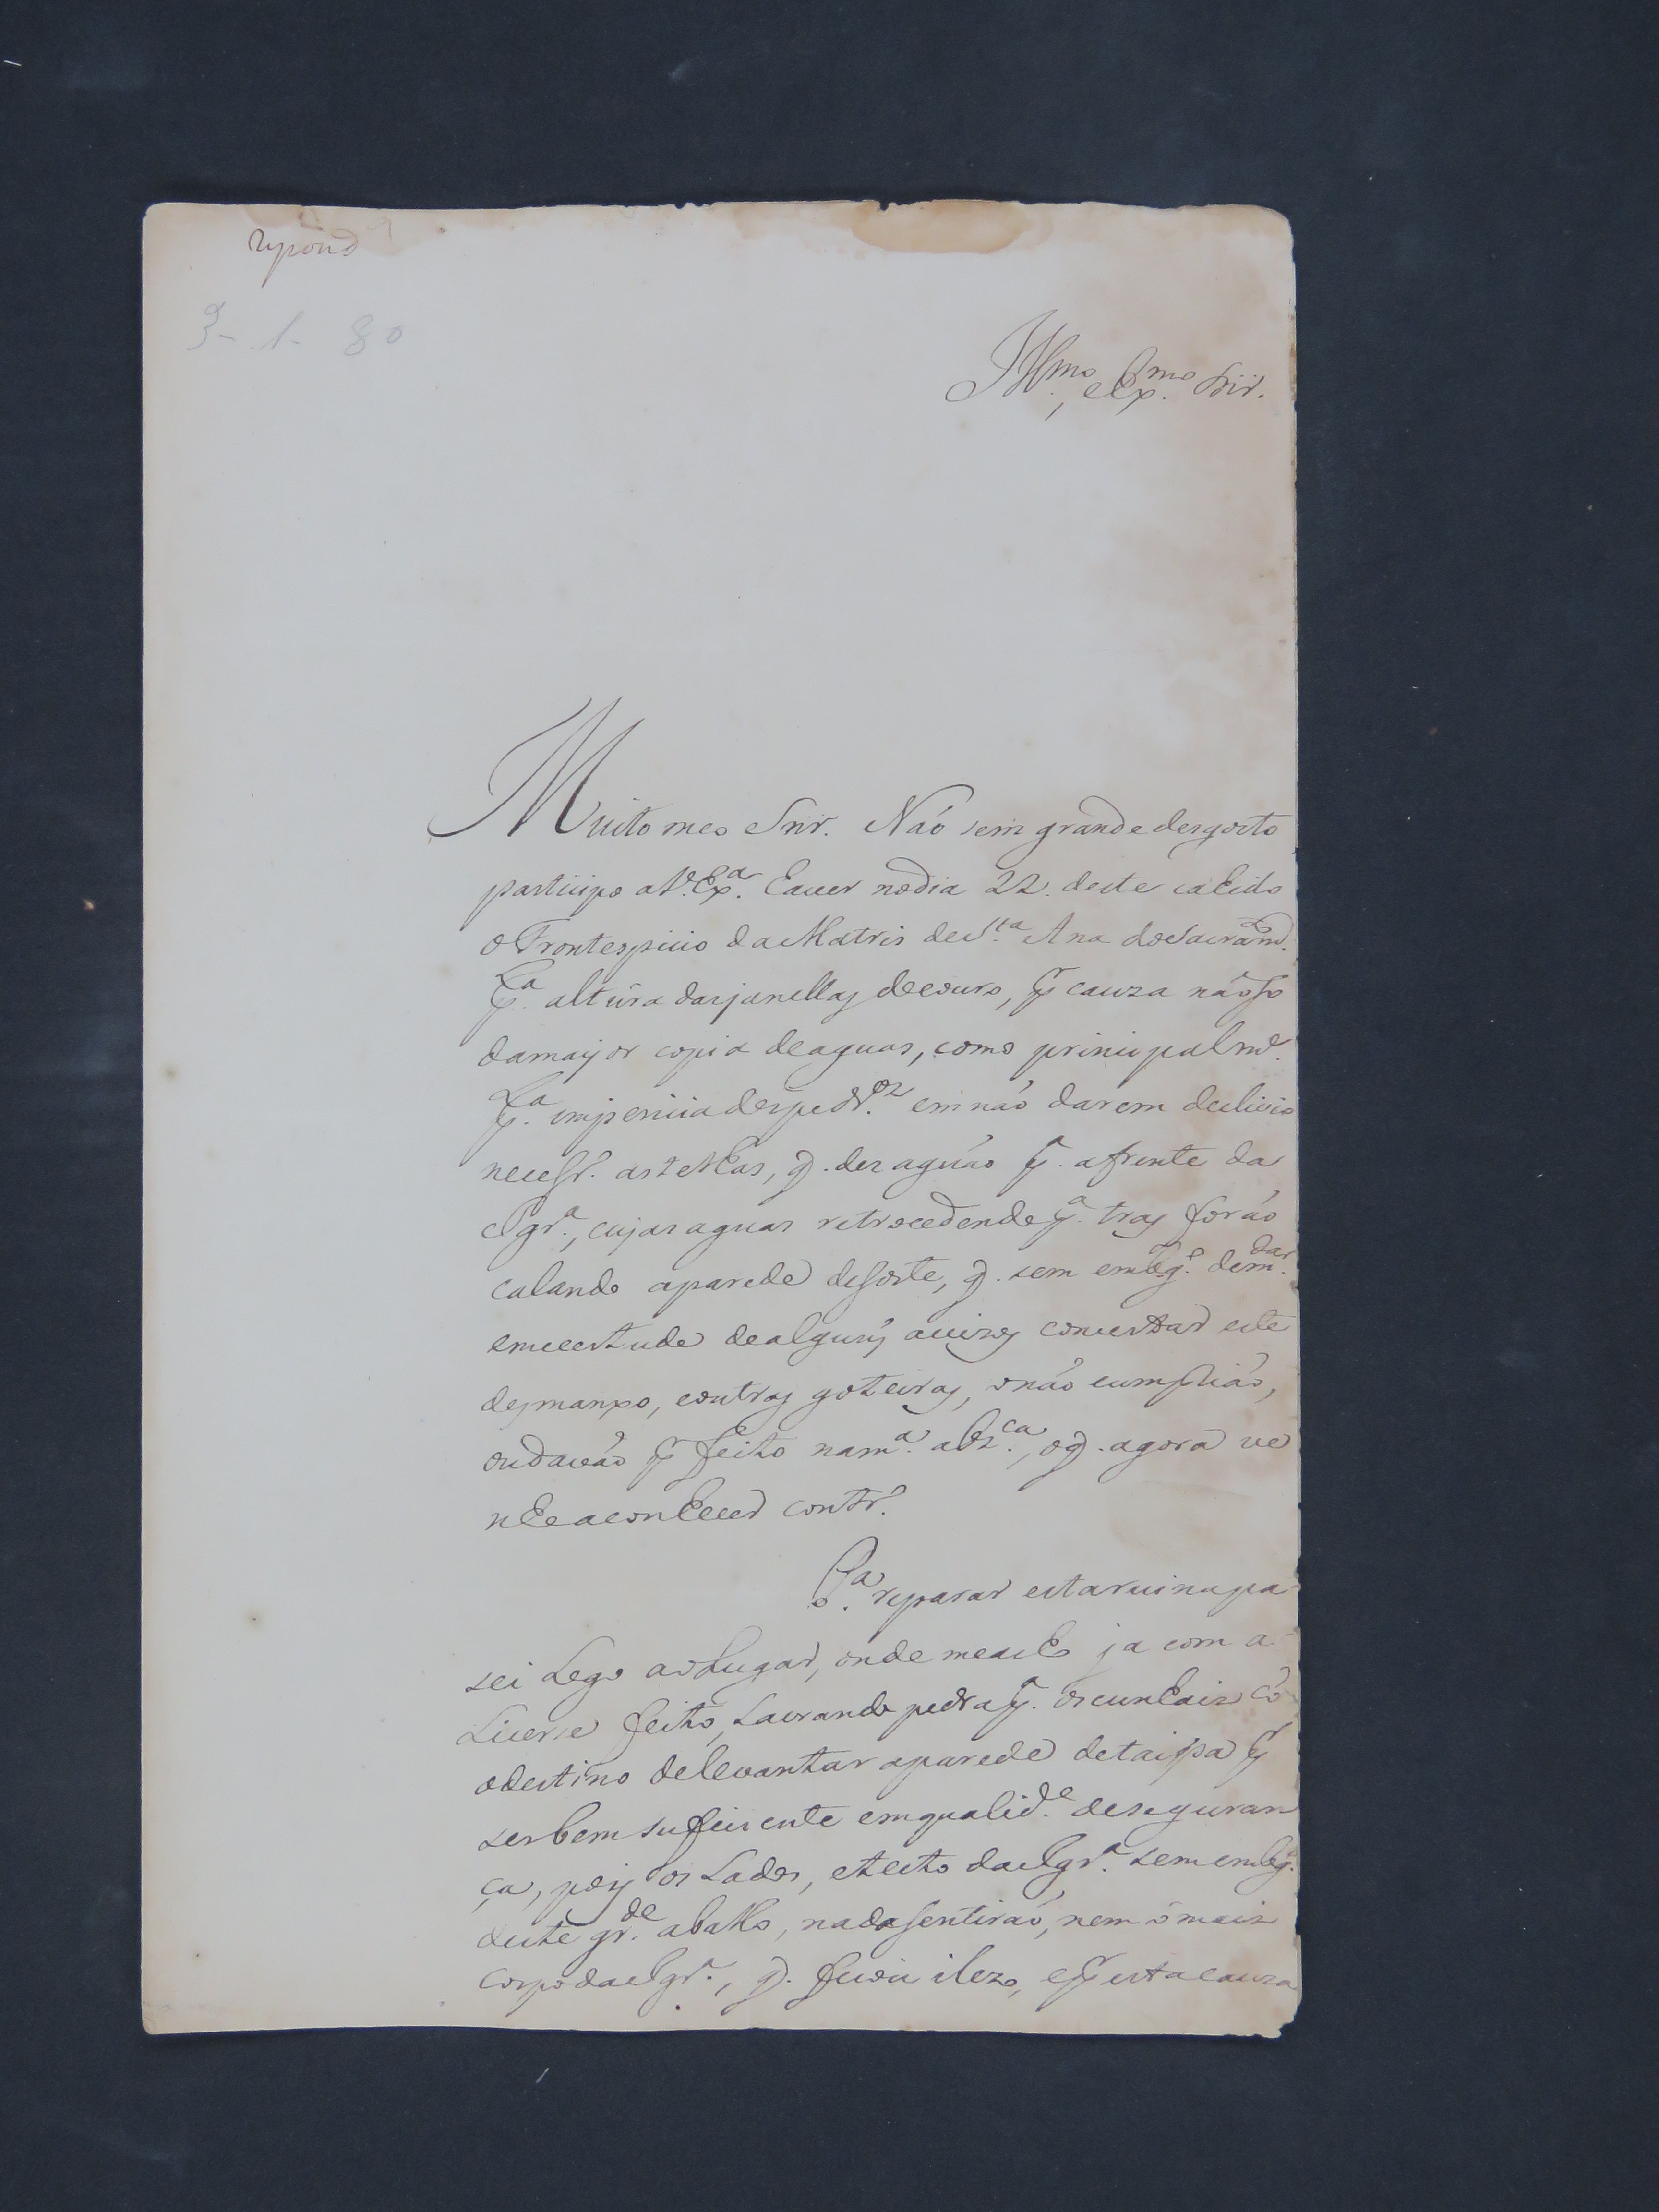 respond
3-1-80
Illmo., e Exmo. Snr.
Muito meo Snr. Naõ sem grande desgosto
participo a V. Exa. haver no dia 22. deste cahido
o Frontespicio da Matris de Sta. Ana do Sacramto.
pa. altúra das janellas do couro, p cauza não so
da mayor copia de aguas, como principalme.
pa. impericia dos pedros. em não darem declivio
necessro. as telhas, q. dezaguão p. a frente da
Igra., cujas aguas retrocedendo pa. tras forão
calando a parede de sorte, q. sem embgo. de mdar.
em certude de alguns avizos concertar este
desmanxo, e outras goteiras, o não cumprião,
ou davão p feito na ma. abzca., o q. agora ve
nho a conhecer contro.
Pa. reparar esta ruina pa
sei Logo ao Lugar, onde me acho ja com a-
Licerse feito, Lavrando pedra p. os cunhais cõ
o destino de levantar a parede de taipa p
ser bem suficiente em qualide. de seguran
ça, pois os Lados, e tecto da Igra. sem embgo.
deste grde. aballo, nada sentiraó, nem ó mais
corpo da Igra., q. ficou ilezo, e p esta cauza